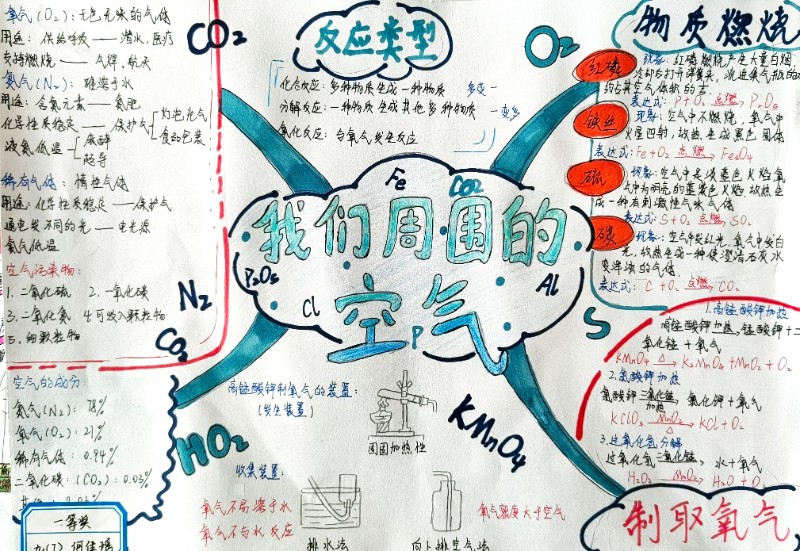 氧气(O₂):无色无味的气体
用途:供给呼吸——潜水,医疗
支持燃烧——气焊,航天
氮气(N₂):难溶于水
用途:含氮元素——氮肥
化学性质稳定——保护气
灯泡充气
食品包装
液氮低温
麻醉
超导
稀有气体:惰性气体
用途:化学性质稳定——保护气
通电发不同的光——电光源
氦气低温
空气污染物:
1.二氧化硫 2.一氧化碳
3.二氧化氮 4.可吸入颗粒物
5.细颗粒物
空气的成分:
氮气(N₂):78%
氧气(O₂):21%
稀有气体:0.94%
二氧化碳:(CO₂):0.03%
一等奖
CO₂
反应类型
化合反应:多种物质生成一种物质 多变一
分解反应:一种物质生成其他多种物质 一变多
氧化反应:与氧气发生反应
O₂
Fe
CO₂
我们周围的
空气
P₂O₅
Cl
Al
P
N₂
C₂
HO₂
KMnO₄
S
物质燃烧
红磷
现象:红磷燃烧产生大量白烟,
表达式:P+O₂ 点燃→ P₂O₅
铁丝
现象:空气中不燃烧,氧气中
火星四射,放热生成黑色固体
表达式:Fe+O₂ 点燃→ Fe₃O₄
硫
现象:空气中是淡蓝色火焰氧
气中为明亮的蓝紫色火焰,放热生
成一种有刺激性气味气体
表达式:S+O₂ 点燃→ SO₂
碳
现象:空气中发红光,氧气中发白
光,放热生成一种使澄清石灰水
变浑浊的气体
表达式:C+O₂ 点燃→ CO₂
1.高锰酸钾加热
高锰酸钾 加热→ 锰酸钾+二
氧化锰+氧气
KMnO₄ △→ K₂MnO₄+MnO₂+O₂
2.氯酸钾加热
氯酸钾 二氧化锰 加热→ 氯化钾+氧气
KClO₃ MnO₂ △→ KCl+O₂
3.过氧化氢分解
过氧化氢 二氧化锰→ 水+氧气
H₂O₂ MnO₂→ H₂O+O₂
制取氧气
高锰酸钾制氧气的装置:
(发生装置)
固固加热性
收集装置:
氧气不易溶于水
氧气不与水反应
排水法
氧气密度大于空气
向上排空气法